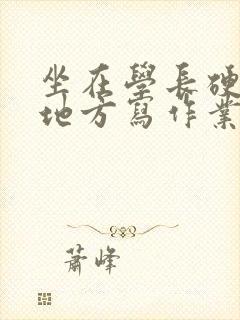 坐在學長硬
地方寫作業
蕭峰